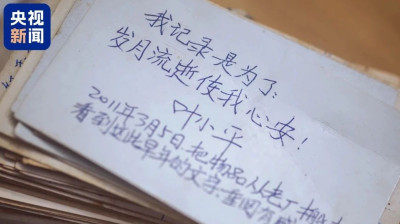 央视
新闻
我记录是为了:
岁月流逝使我心安!
叶小平
2011年3月5日把物品从老厂搬
看到这些早年的文字.查阅有感